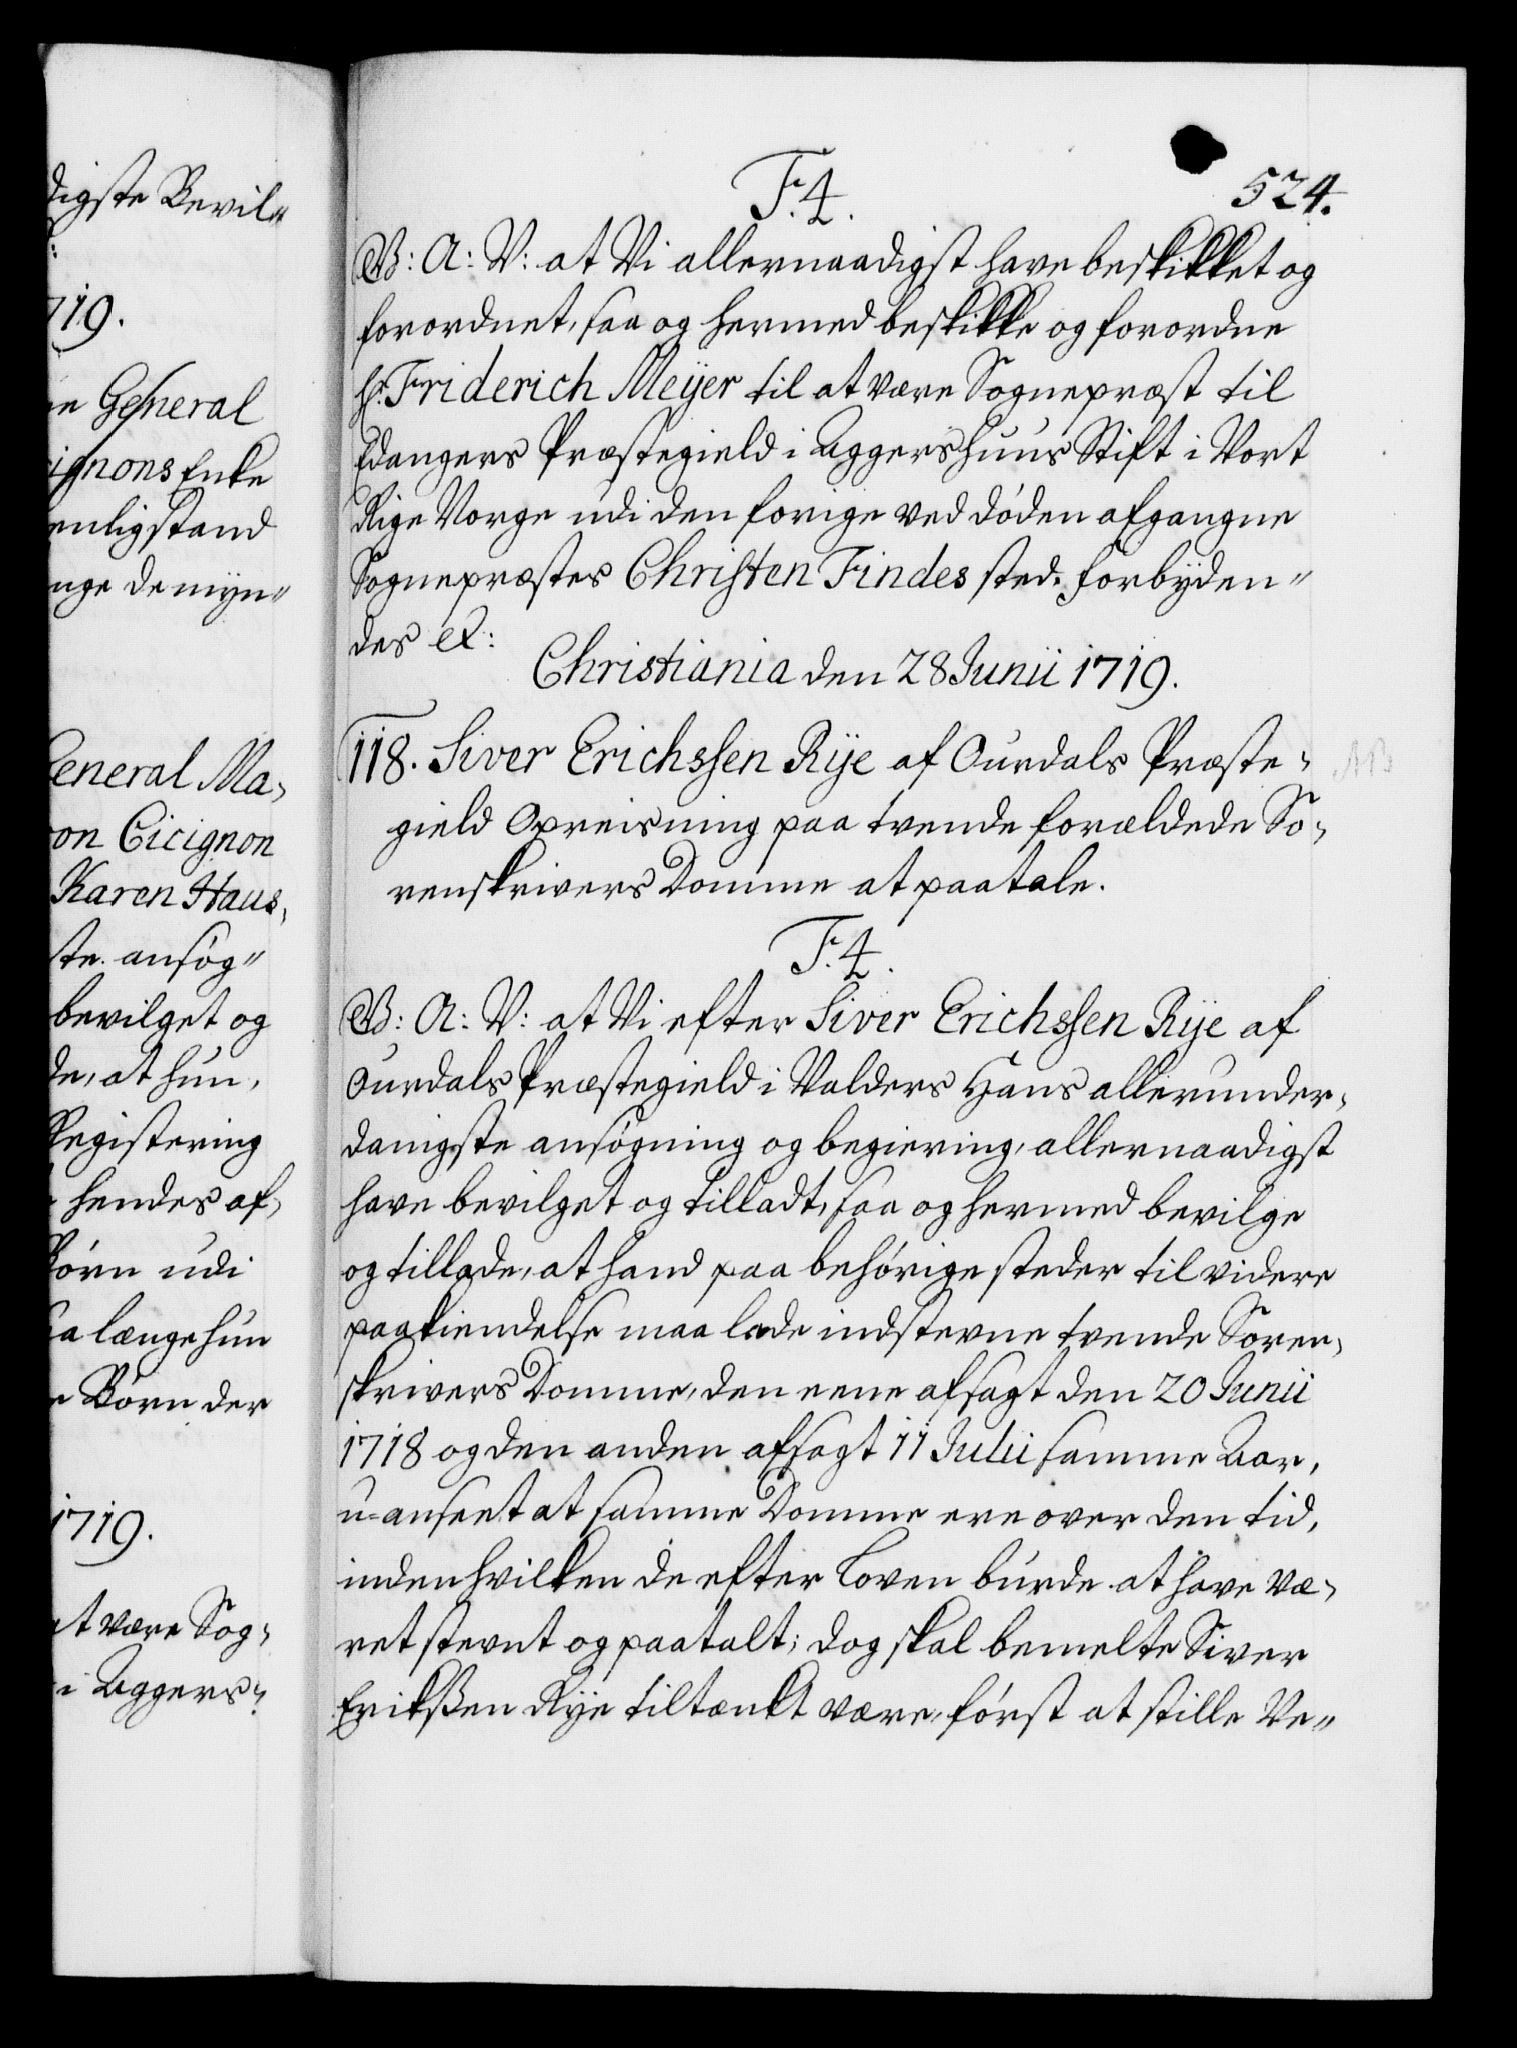 digste Bevil„
719.
General
ignons Enke
enlig stand
nge de myn„
General Ma-
on Cicignon
Karen Haus,
ste ansøg„
bevilget og
de, at hun,
Registering
hendes af-
Børn udi
a længe hun
Børn der
1719.
at være Sog-
i Aggers-
524.
F. 4.
G: A: V: at Vi allernaadigst have beskikket og
forordnet, saa og hermed beskikke og forordne
Hr. Friderich Meÿer til at være Sognepræst til
Edangers Præstegield i Aggershuus Stift i Vort
Rige Norge udi den forige ved døden afgangne
Sognepræstes Christen Findes sted. Forbÿden„
des etc:
Christiania den 28 Junii 1719.
118. Siver Erichssen Rÿe af Ourdals Præste-
gield Opreisning paa tvende forældede So-
renskrivers Domme at paatale.
F. 4.
G: A: V: at Vi efter Siver Erichssen Rÿe af
Ourdals Præstegield i Valders Hans allerunder-
danigste ansøgning og begiering, allernaadigst
have bevilget og tilladt, saa og hermed bevilge
og tillade, at hand paa behørige steder til videre
paakiendelse maa lade indstevne tvende Soren-
skrivers Domme, den eene afsagt den 20 Junii
1718 og den anden afsagt 11 Julii samme Aar,
u-anseet at samme Domme ere over den tid,
inden hvilken de efter Loven burde at have væ-
ret stevnt og paatalt; dog skal bemelte Siver
Erikßen Rÿe tiltænkt være, først at stille Ve„